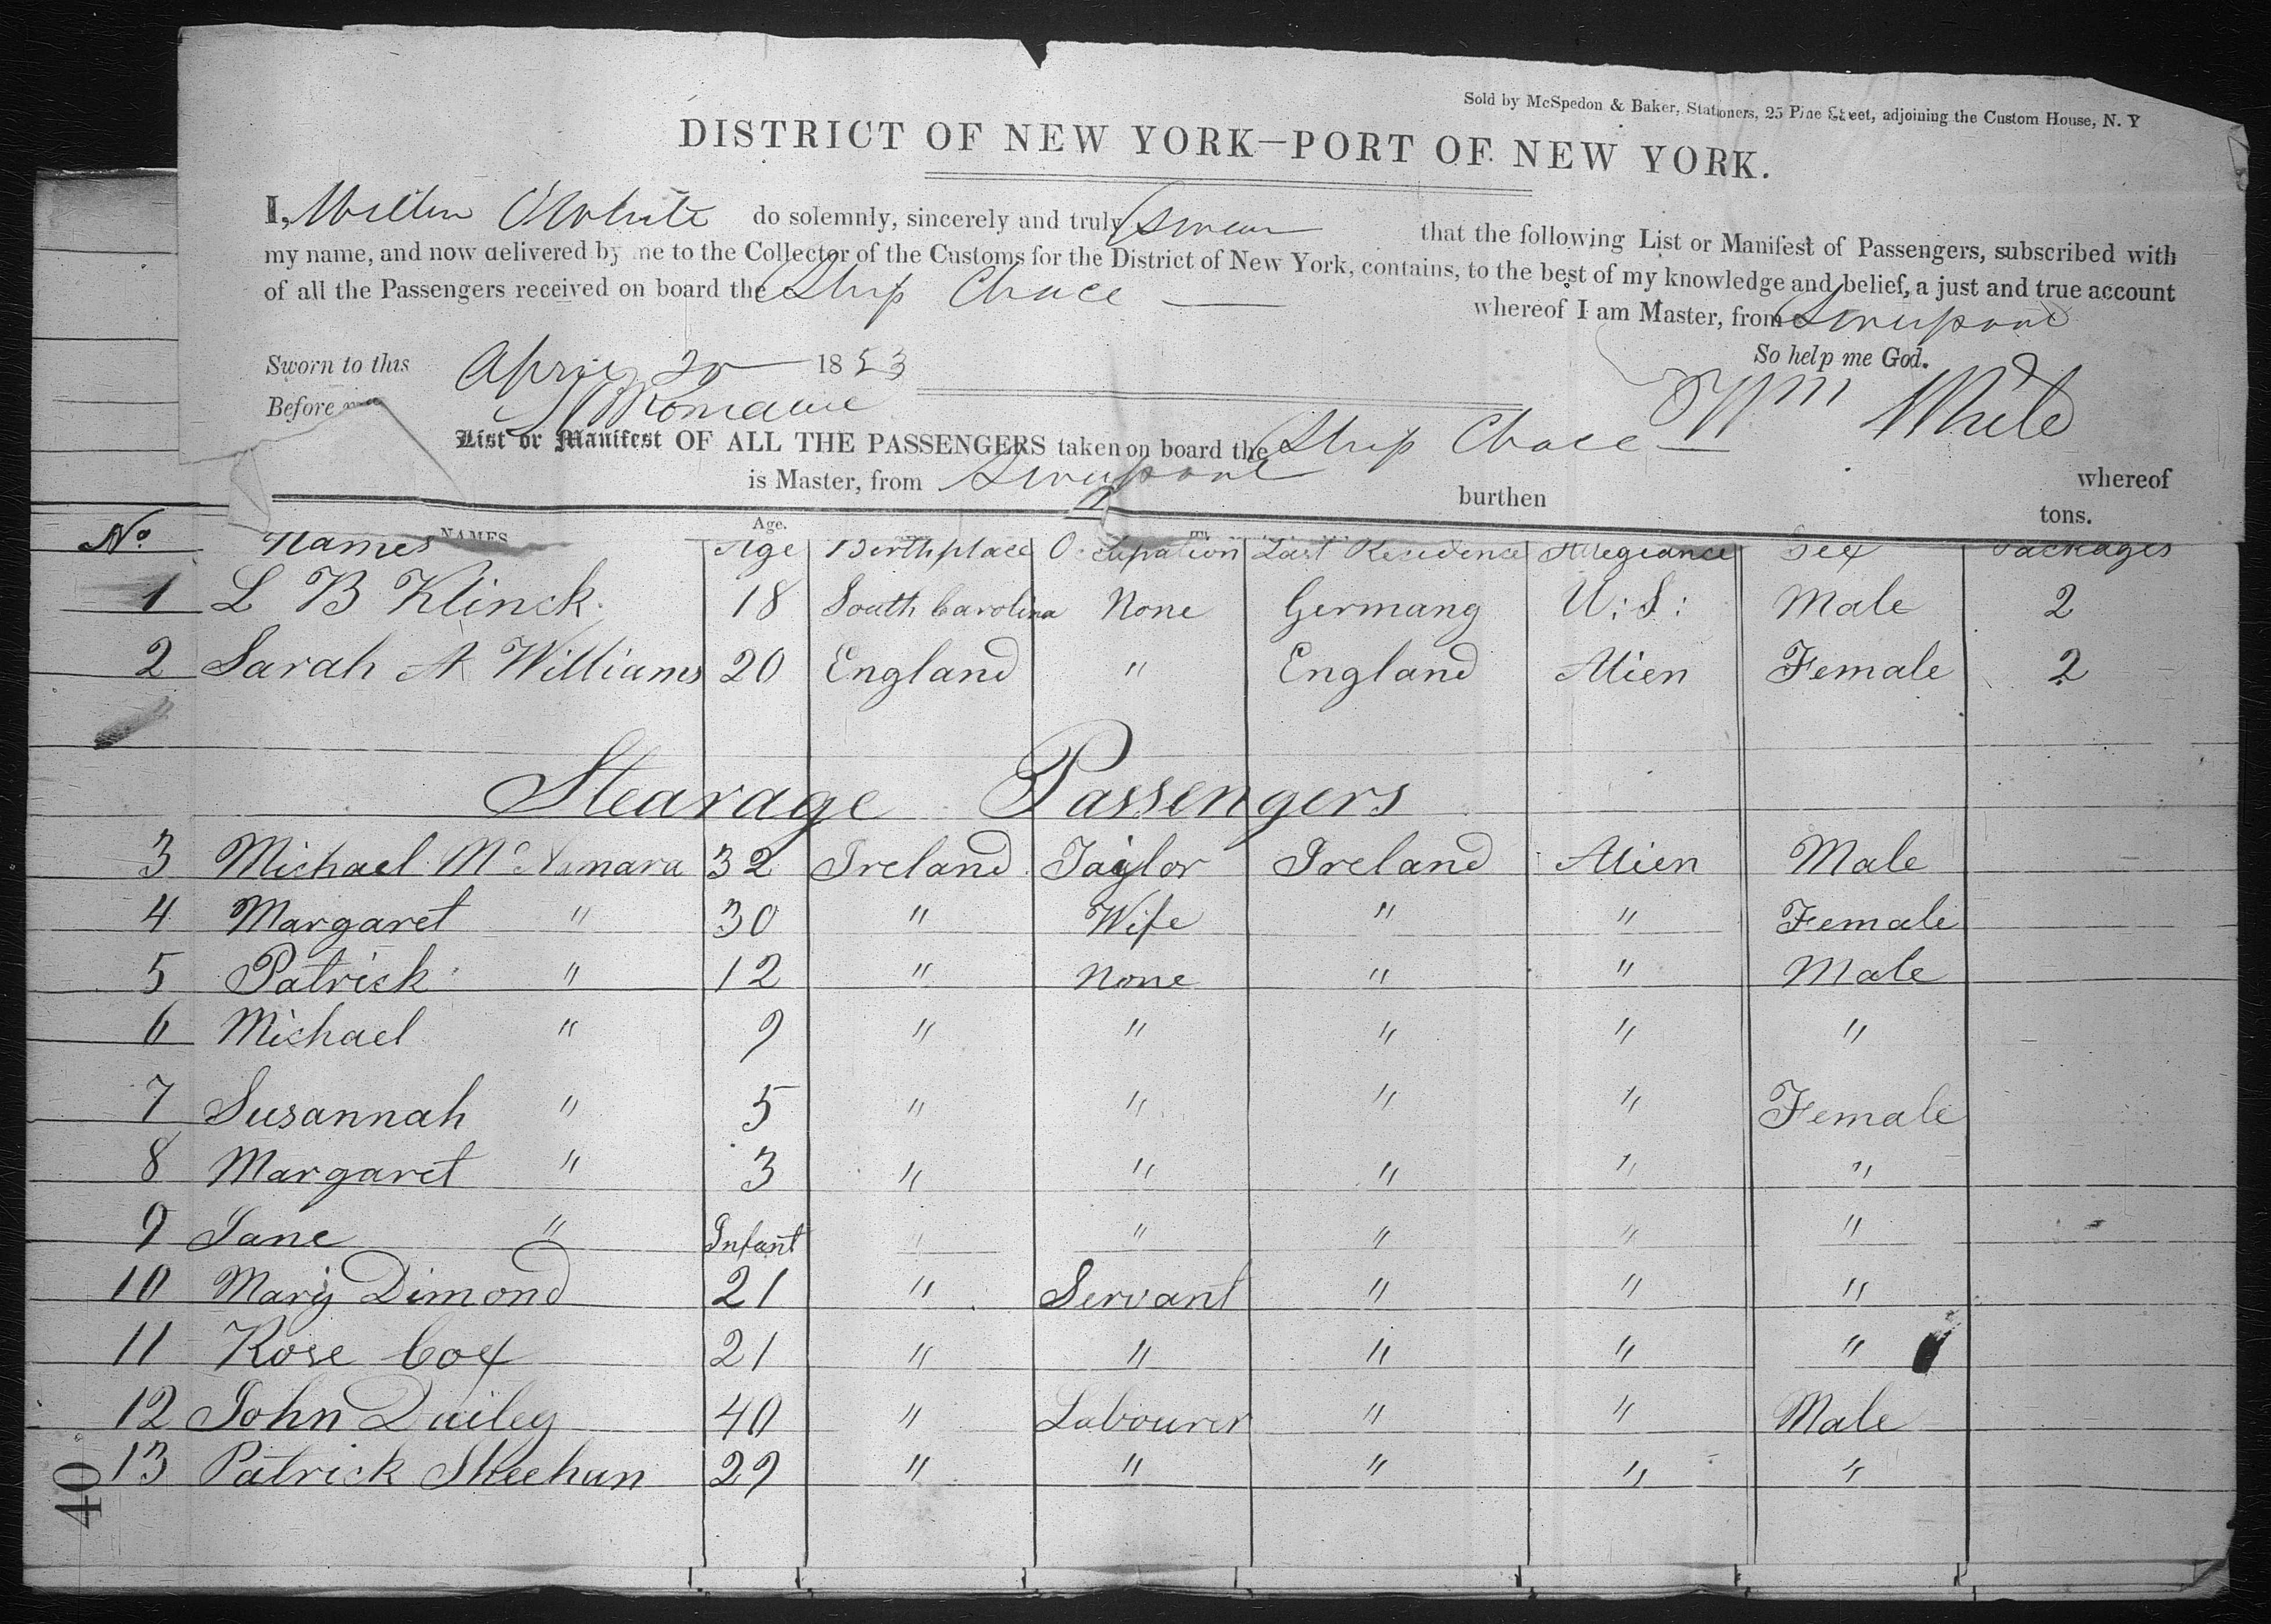 Sold by McSpedon & Baker, Stationers, 25 Pine Street, adjoining the Custom House, N. Y
DISTRICT OF NEW YORK—PORT OF NEW YORK.
I, White do solemnly, sincerely and truly swear that the following List or Manifest of Passengers, subscribed with
my name, and now delivered by me to the Collector of the Customs for the District of New York, contains, to the best of my knowledge and belief, a just and true account
of all the Passengers received on board the Ship Chace whereof I am Master, from Liverpool
So help me God.
Sworn to this April 20 1853
Before me Wm White
List or Manifest OF ALL THE PASSENGERS taken on board the Ship Chace whereof
is Master, from Liverpool burthen tons.
NAMES Age.
No. Names Age Birthplace Occupation Last Residence Allegiance Sex Packages
1 L B Klinck 18 South Carolina None Germany U:S: Male 2
2 Sarah A Williams 20 England " England Alien Female 2
Stearage Passengers
3 Michael McNamara 32 Ireland Taylor Ireland Alien Male
4 Margaret " 30 " Wife " " Female
5 Patrick " 12 " None " " Male
6 Michael " 9 " " " " "
7 Susannah " 5 " " " " Female
8 Margaret " 3 " " " " "
9 Jane " Infant " " " " "
10 Mary Dimond 21 " Servant " " "
11 Rose Cox 21 " " " " "
12 John Dailey 40 " Labourer " " Male
13 Patrick Sheehan 29 " " " " "
40